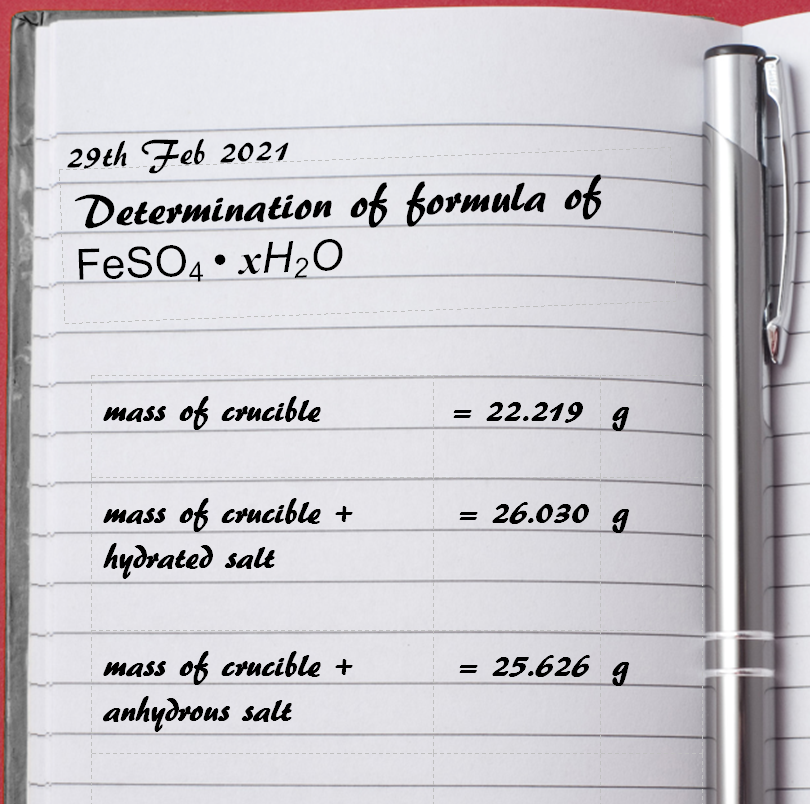 29th Feb 2021
Determination of formula of
FeSO₄ • xH₂O
mass of crucible = 22.219 g
mass of crucible + = 26.030 g
hydrated salt
mass of crucible + = 25.626 g
anhydrous salt